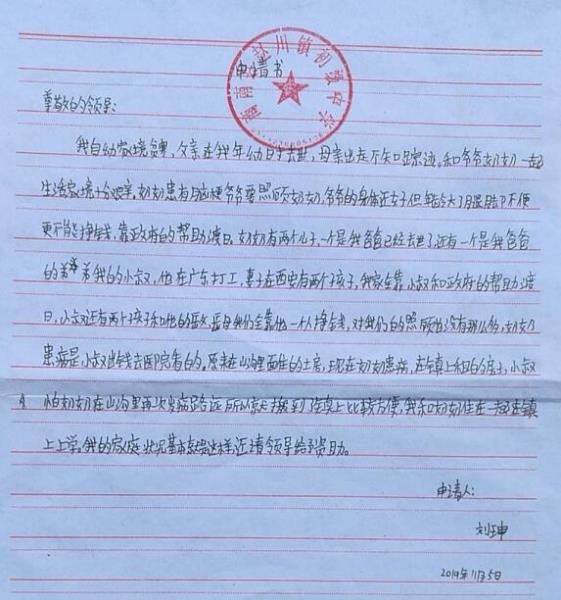 申请书
商南县赵川镇初级中学
尊敬的领导:
我自幼家境贫寒,父亲在我年幼时去世,母亲出走不知踪迹。和爷爷奶奶一起
生活家境十分艰辛,奶奶患有脑梗爷爷要照顾奶奶,爷爷的身体还好但年龄大了腿脚不便
更不能挣钱,靠政府的帮助渡日。奶奶有两个儿子,一个是我爸爸已经去世了还有一个是我爸爸
的弟弟我的小叔,他在广东打工,妻子在西安有两个孩子,我家全靠小叔和政府的帮助渡
日,小叔还有两个孩子和他的岳父岳母他们全靠他一人挣钱,对我们的照顾也没有那么多,奶奶
患病是小叔出钱去医院看的。原来在山沟里面住的土房,现在奶奶患病,在镇上租的房子,小叔
怕奶奶在山沟里再次发病路远所以就搬到镇上比较方便,我和奶奶住在一起在镇
上上学,我的家庭状况基本就是这样,还请领导给予资助。
申请人:
刘坤
2019年11月5日